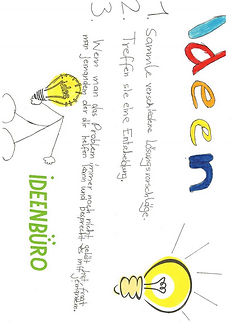 Ideen
1. Sammle verschiedene Lösungsvorschläge.
2. Treffen sie eine Entscheidung.
3. Wenn man das Problem immer noch nicht gelöst hat fragt
man jemanden der dir helfen kann und bespricht es mit
jemandem.
iDEENBÜRO